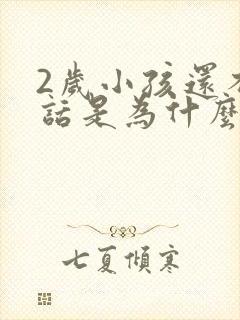 2歲小孩還不
話是為什麼
七夏傾寒